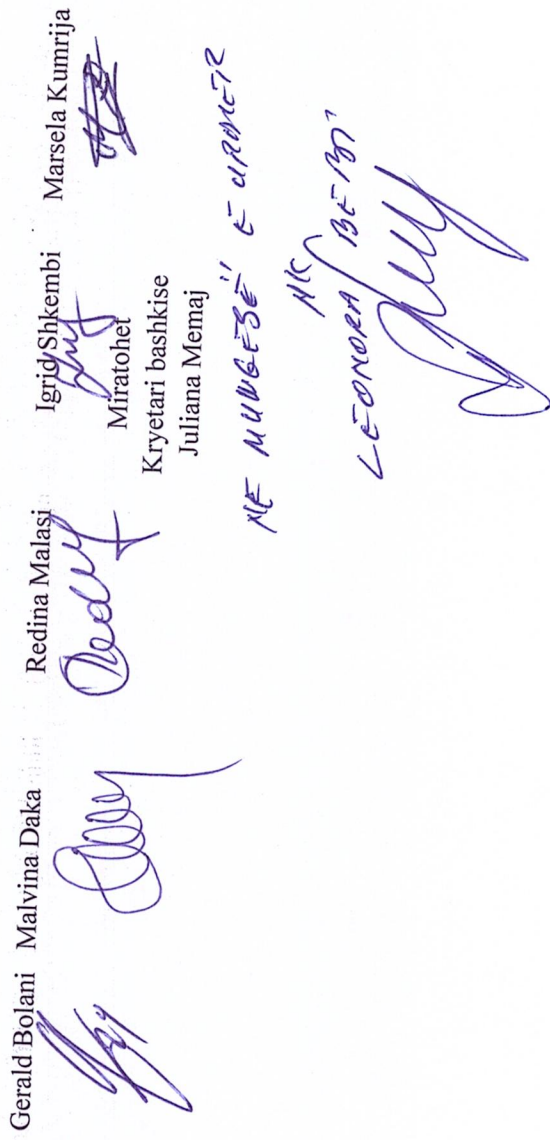 Gerald Bolani Malvina Daka Redina Malasi Igrid Shkembi Marsela Kumrija
Miratohet
Kryetari bashkise
Juliana Memaj
NE MUNGESË E URDHËR
NK
LEONORA BEBI